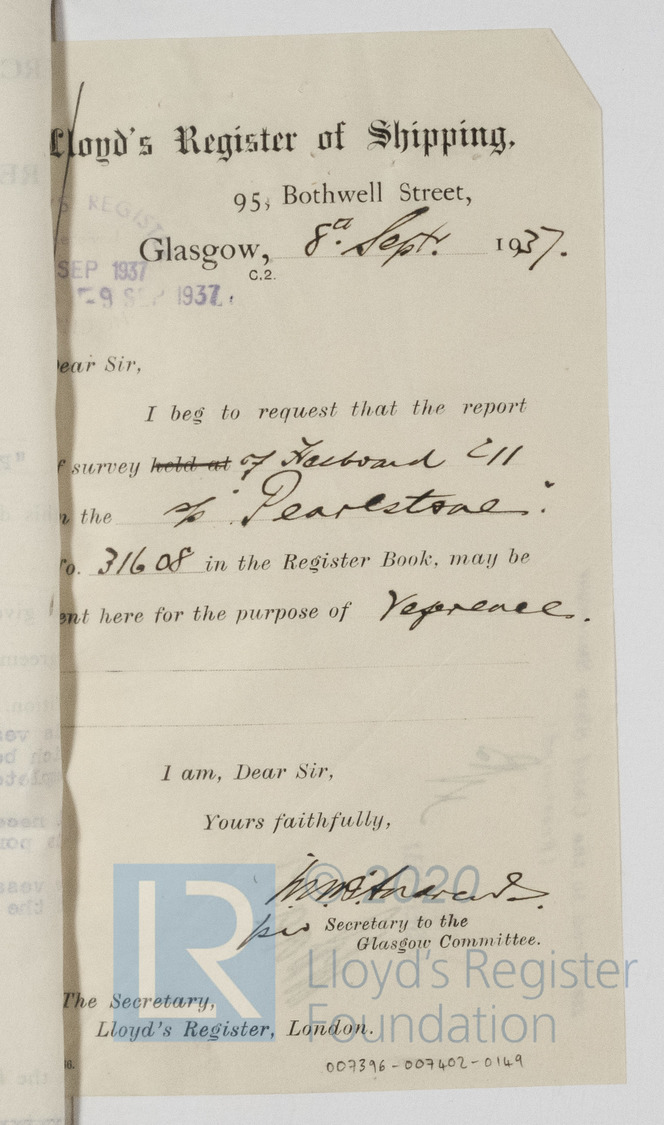 Lloyd's Register of Shipping,
95, Bothwell Street,
Glasgow, 8th Septr. 1937.
C.2.
SEP 1937
-9 SEP 1937
ear Sir,
I beg to request that the report
survey held at of Freeboard C11
the s/s "Pearlstone".
o. 31608 in the Register Book, may be
ent here for the purpose of reference.
I am, Dear Sir,
Yours faithfully,
pro Secretary to the
Glasgow Committee.
The Secretary,
Lloyd's Register, London.
© 2020
LR
Lloyd's Register
Foundation
007396-007402-0149